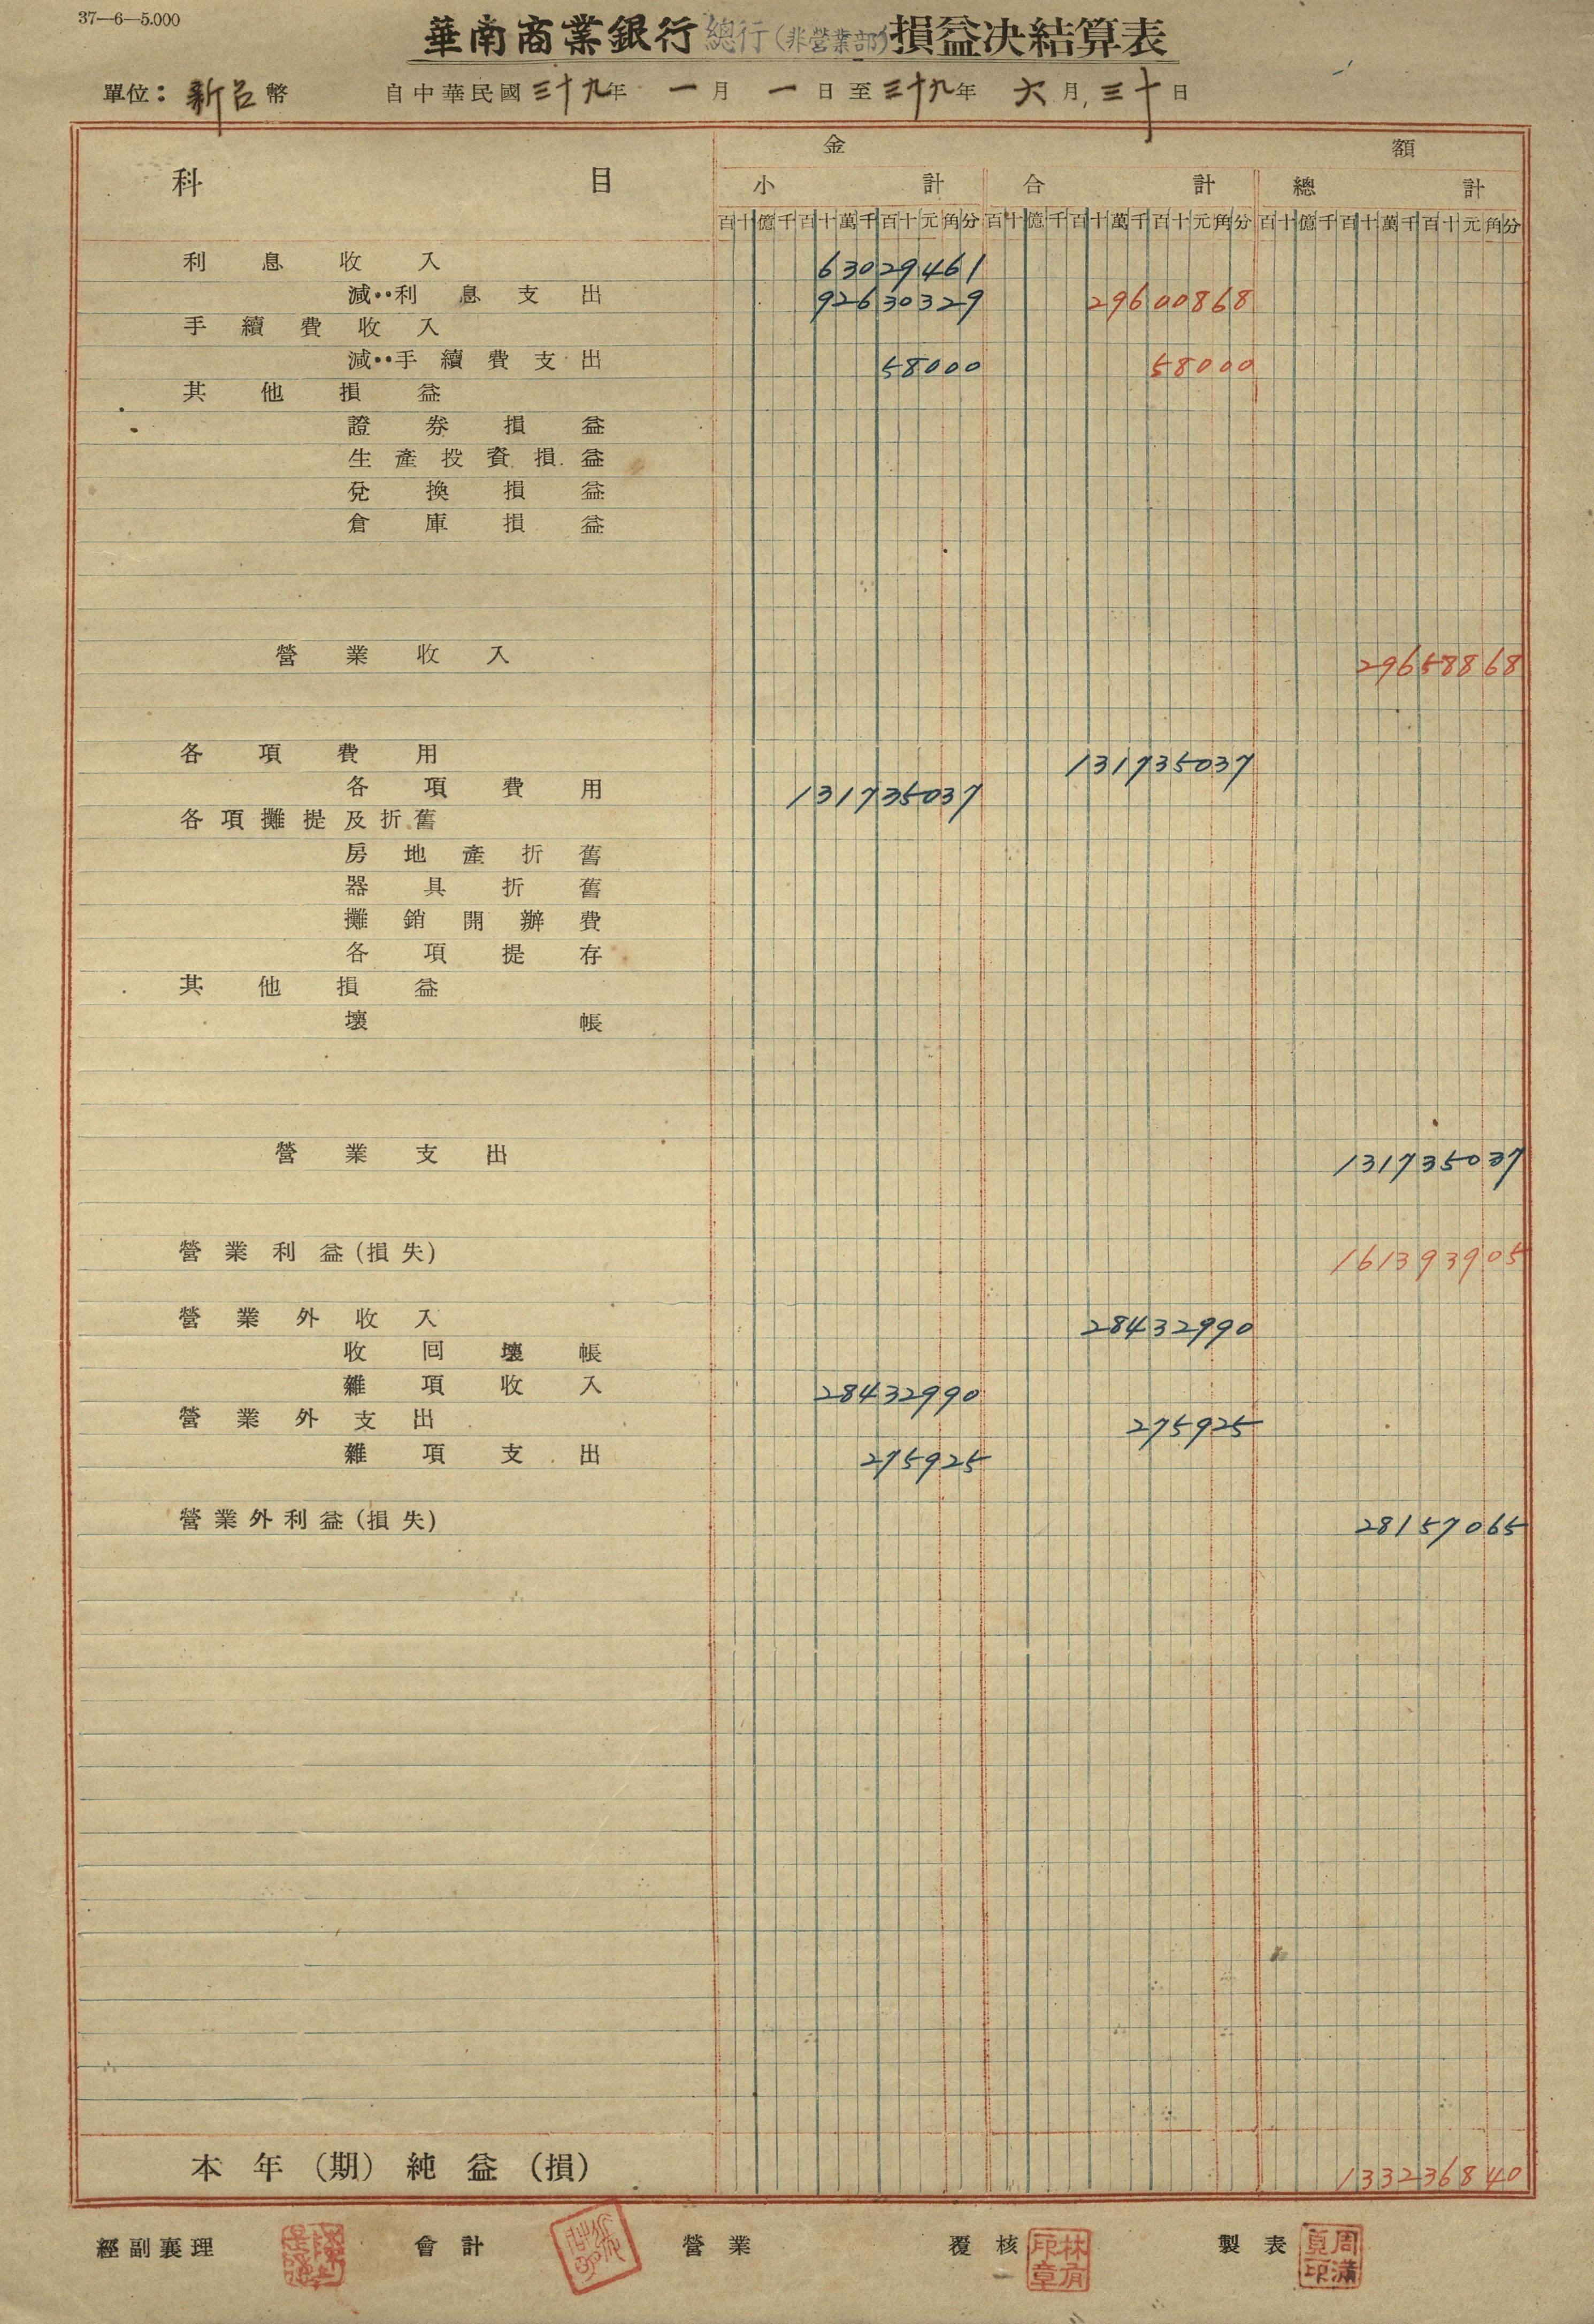 37—6—5.000
華南商業銀行總行(非營業部)損益決結算表
單位：新台幣 自中華民國三十九年一月一日至三十九年六月三十日
金額
科目 小計 合計 總計
百十億千百十萬千百十元角分 百十億千百十萬千百十元角分 百十億千百十萬千百十元角分
利息收入 63029461
減：利息支出 92630329 29600868
手續費收入
減：手續費支出 58000 58000
其他損益
證券損益
生產投資損益
兌換損益
倉庫損益
營業收入 29658868
各項費用 131735037
各項費用 131735037
各項攤提及折舊
房地產折舊
器具折舊
攤銷開辦費
各項提存
其他損益
壞帳
營業支出 131735037
營業利益(損失) 161393905
營業外收入 28432990
收回壞帳
雜項收入 28432990
營業外支出 275925
雜項支出 275925
營業外利益(損失) 28157065
本年(期)純益(損) 133236840
經副襄理 會計 營業 覆核 林有印章 製表 周滿貞印